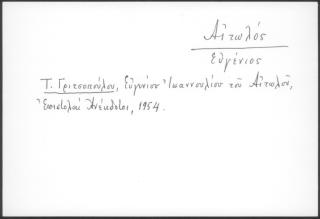 Αἰτωλός
Εὐγένιος
Τ. Γριτσοπούλου, Εὐγενίου Ἰωαννουλίου τοῦ Αἰτωλοῦ,
Ἐπιστολαὶ Ἀνέκδοτοι, 1954.